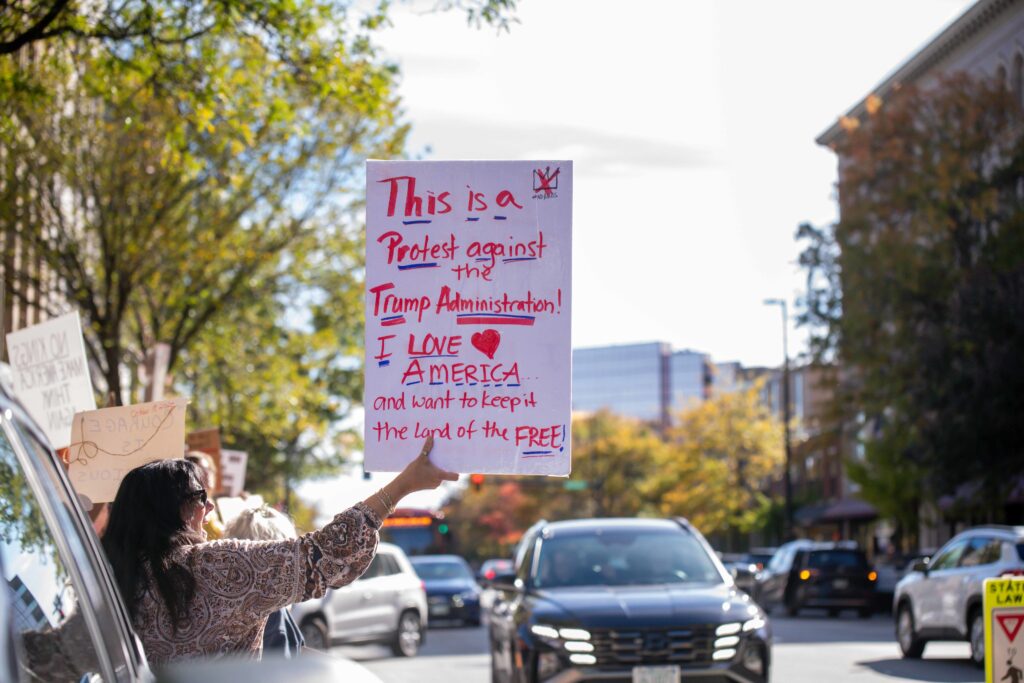 This is a
Protest against
the
Trump Administration!
I LOVE
AMERICA...
and want to keep it
the land of the FREE!
NO KINGS
MAKE AMERICA
THINK
AGAIN
COURAGE
IS
STATE
LAW